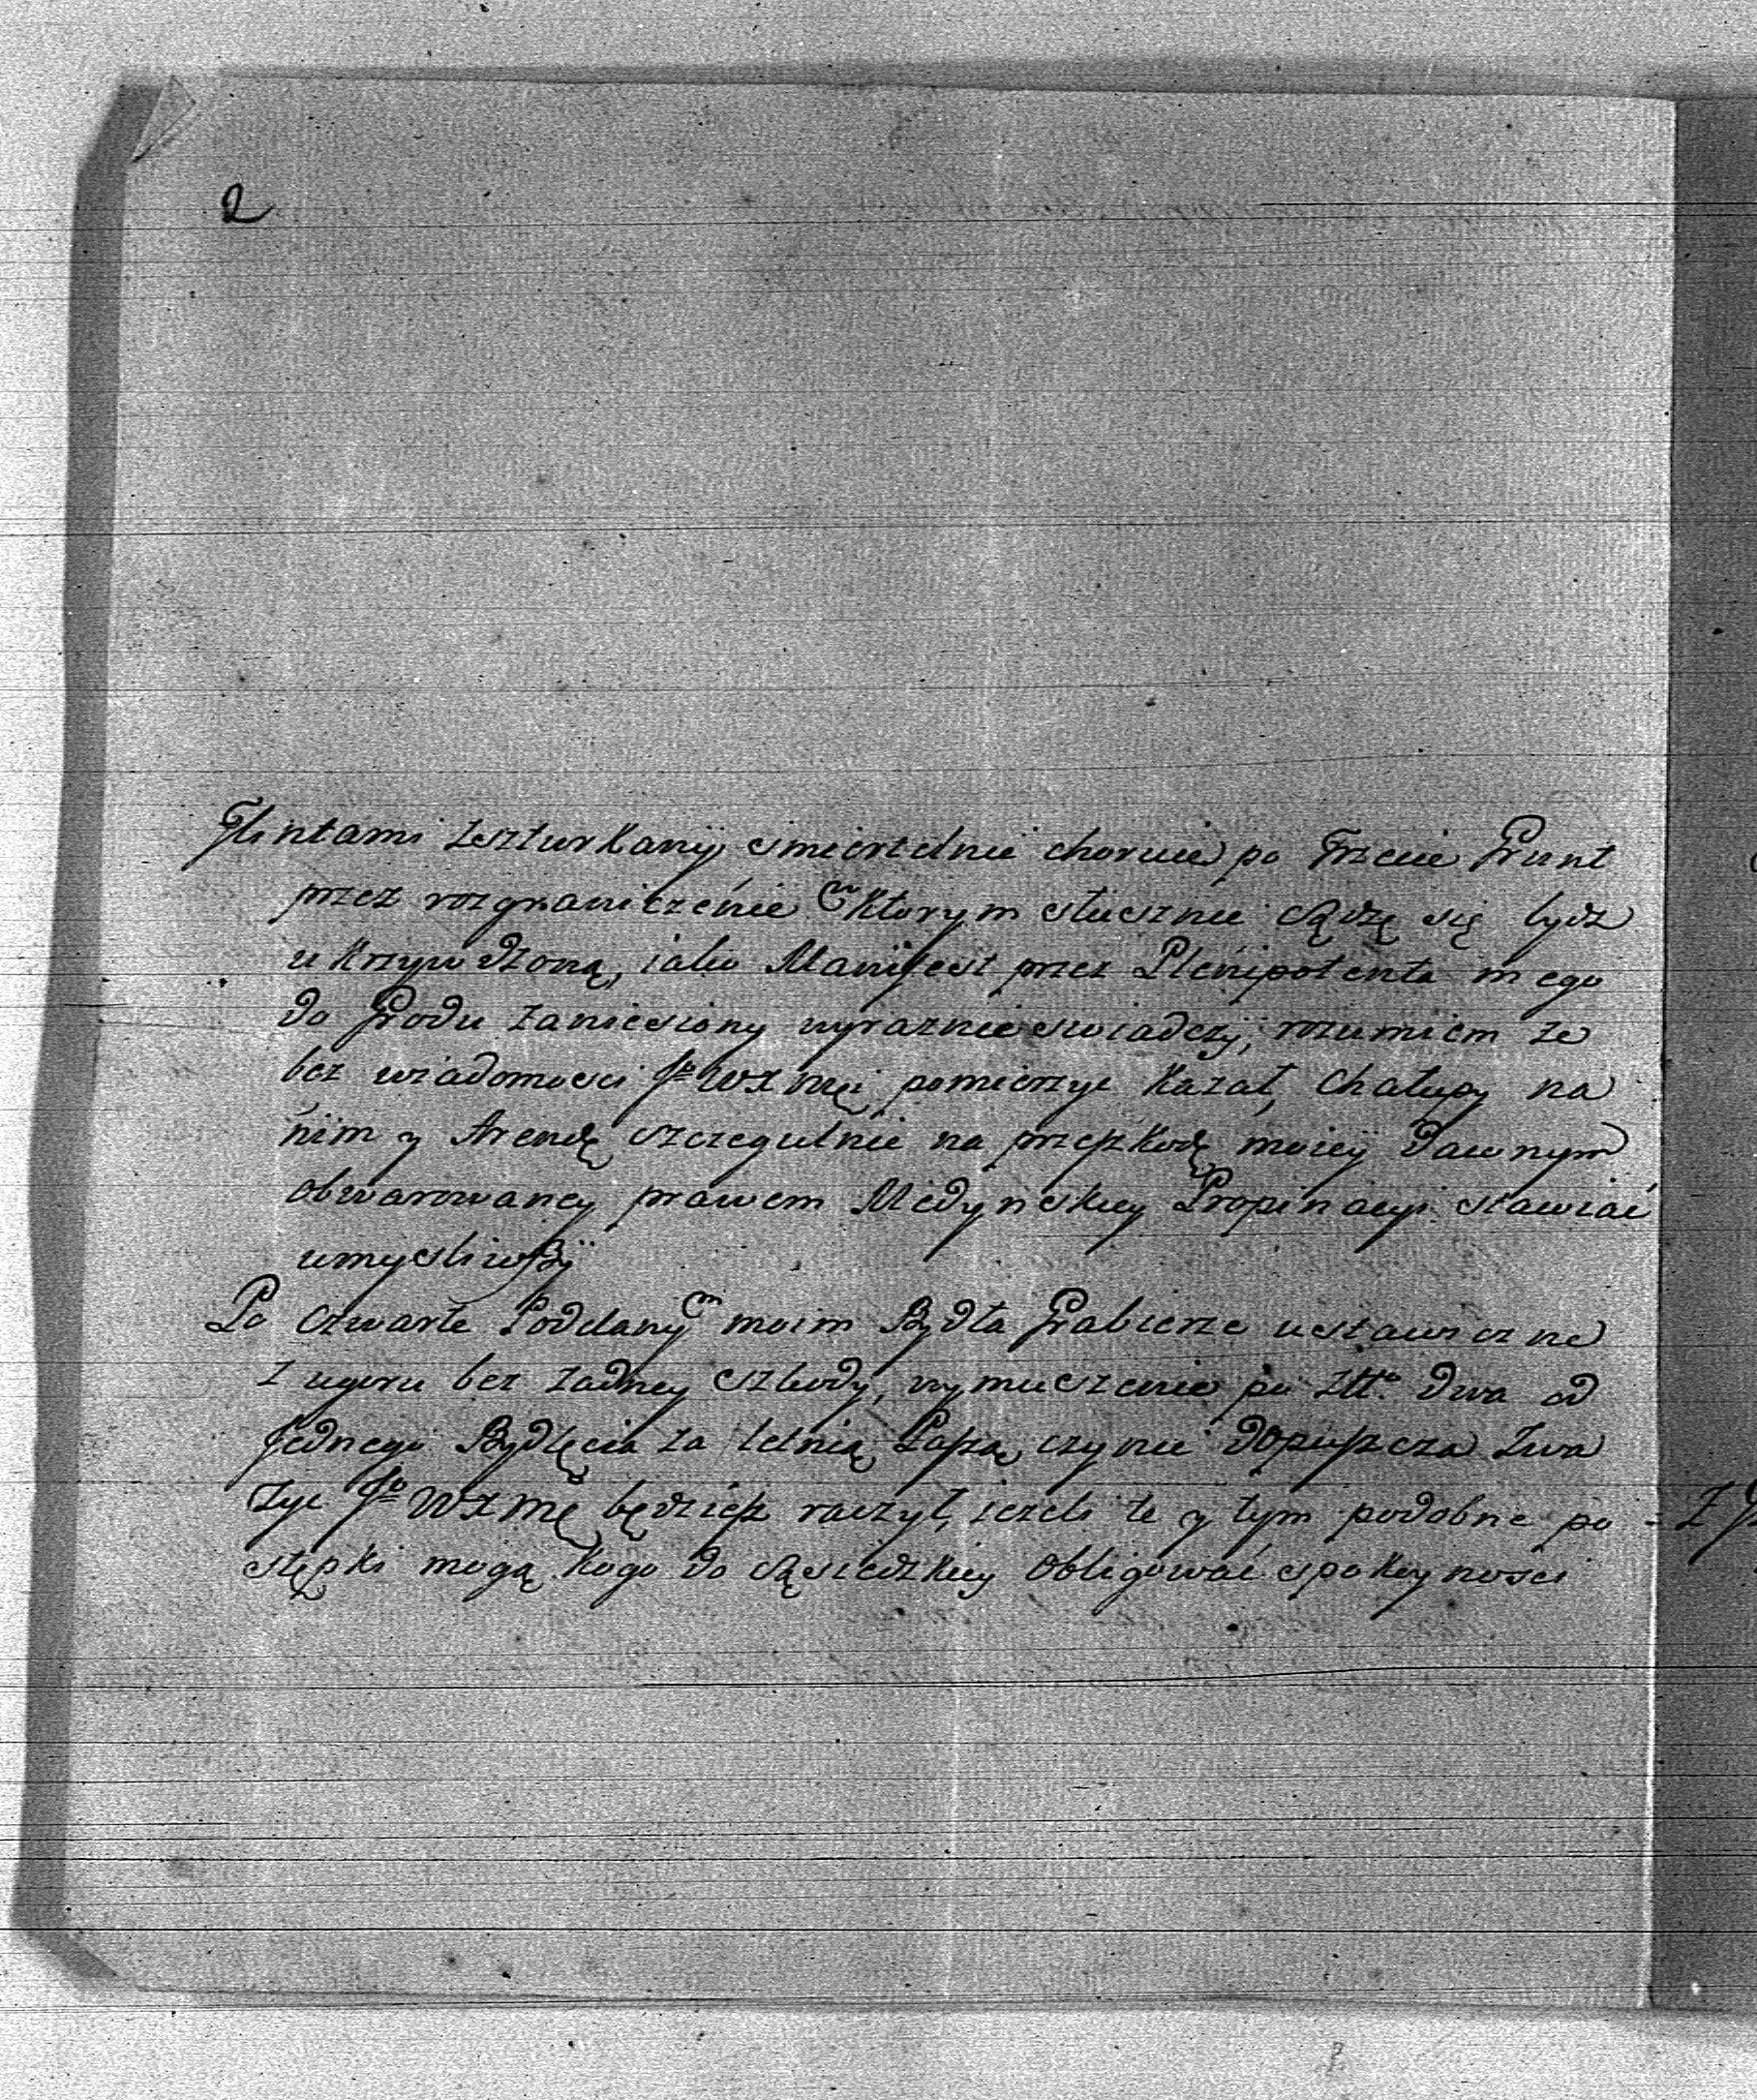 2
Flintami zszturkanÿ smiertelnie choruie po Trzcie Grunt
przez rozgraniczénie w ktorym słusznie sądzę się bydz
ukrzywdzoną, iako Manifest przez Plenipotenta mego
do Grodu zaniesiony wyraznie swiadczÿ, rozumiem ze
bez wiadomosci Jo WX Mći pomierzyc kazał, chałupy na
nim y Arendę szczegulnie na przeszkodę moieÿ dawnym
obwarowaney prawem Medynskiey Propinacyi stawiać
umysliwszÿ
Po czwarte Poddanym moim Bydła Grabierze ustawiczne
z ugoru bez zadney szkody, wymuszenie po Złło dwa od
Jednego Bydlęcia za letnią Paszą, czynie dopuszcza Zwa
zyc Jo WX Mć będziesz raczył, iezeli te y tym podobne po =
stępki mogą kogo do sąsiedzkiey obligować spokoyności